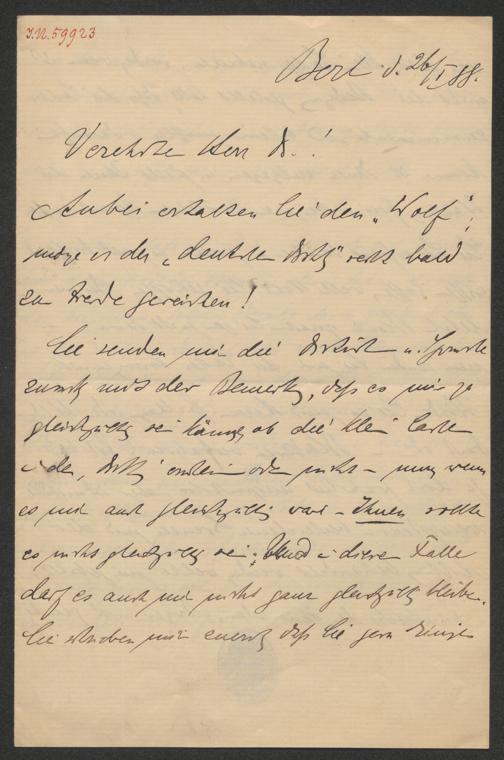 J.N. 59923
Berl d. 26/I 88.
Verehrter Herr Dr.!
Anbei erhalten Sie den „Wolf";
möge er der „deutschen Dichtg" recht bald
zur Freude gereichen!
Sie senden mir die u. Sprüche
zurück mit der Bemerkg, daß es mir ja
gleichgültig sein könne, ob die klein
in der „Dichtg" erschein oder nicht – nun, wenn
es mir auch gleichgültig war – Ihnen sollte
es nicht gleichgültig sein; Und in diesem Falle
darf es auch mir nicht ganz gleichgültig bleiben.
Sie schrieben mir daß Sie gern Einiges